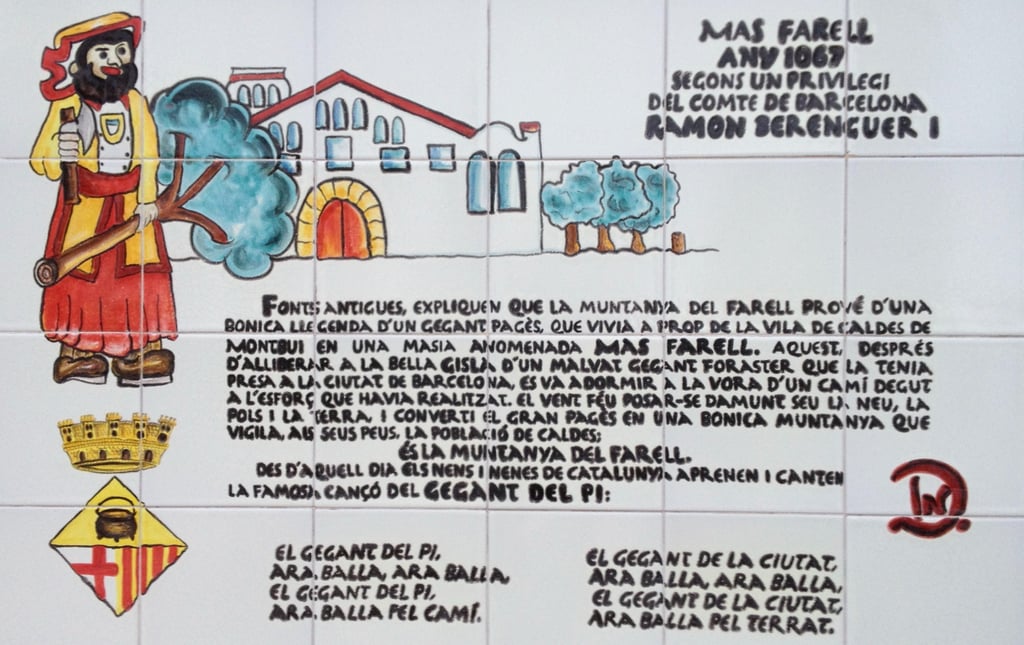 MAS FARELL
ANY 1067
SEGONS UN PRIVILEGI
DEL COMTE DE BARCELONA
RAMON BERENGUER I
FONTS ANTIGUES, EXPLIQUEN QUE LA MUNTANYA DEL FARELL PROVÉ D'UNA
BONICA LLEGENDA D'UN GEGANT PAGÈS, QUE VIVIA A PROP DE LA VILA DE CALDES DE
MONTBUI EN UNA MASIA ANOMENADA MAS FARELL. AQUEST, DESPRÉS
D'ALLIBERAR A LA BELLA GISLA D'UN MALVAT GEGANT FORASTER QUE LA TENIA
PRESA A LA CIUTAT DE BARCELONA, ES VA ADORMIR A LA VORA D'UN CAMÍ DEGUT
A L'ESFORÇ QUE HAVIA REALITZAT. EL VENT FÉU POSAR-SE DAMUNT SEU LA NEU, LA
POLS I LA TERRA, I CONVERTI EL GRAN PAGÈS EN UNA BONICA MUNTANYA QUE
VIGILA, ALS SEUS PEUS, LA POBLACIÓ DE CALDES;
ÉS LA MUNTANYA DEL FARELL.
DES D'AQUELL DIA ELS NENS I NENES DE CATALUNYA APRENEN I CANTEN
LA FAMOSA CANÇÓ DEL GEGANT DEL PI:
EL GEGANT DEL PI,
ARA BALLA, ARA BALLA,
EL GEGANT DEL PI,
ARA BALLA PEL CAMÍ.
EL GEGANT DE LA CIUTAT,
ARA BALLA, ARA BALLA,
EL GEGANT DE LA CIUTAT,
ARA BALLA PEL TERRAT.